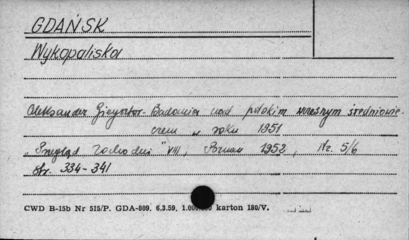 GDAŃSK
Wykopaliska
Aleksander Gieysztor - Badania nad polskim wczesnym średniowie-
czem w roku 1951
"Przegląd Zachodni" VIII, Poznań 1952, Nr. 5/6
str. 334-341
CWD B-15b Nr 515/P. GDA-809. 6.3.59, 1.000.000 karton 180/V.